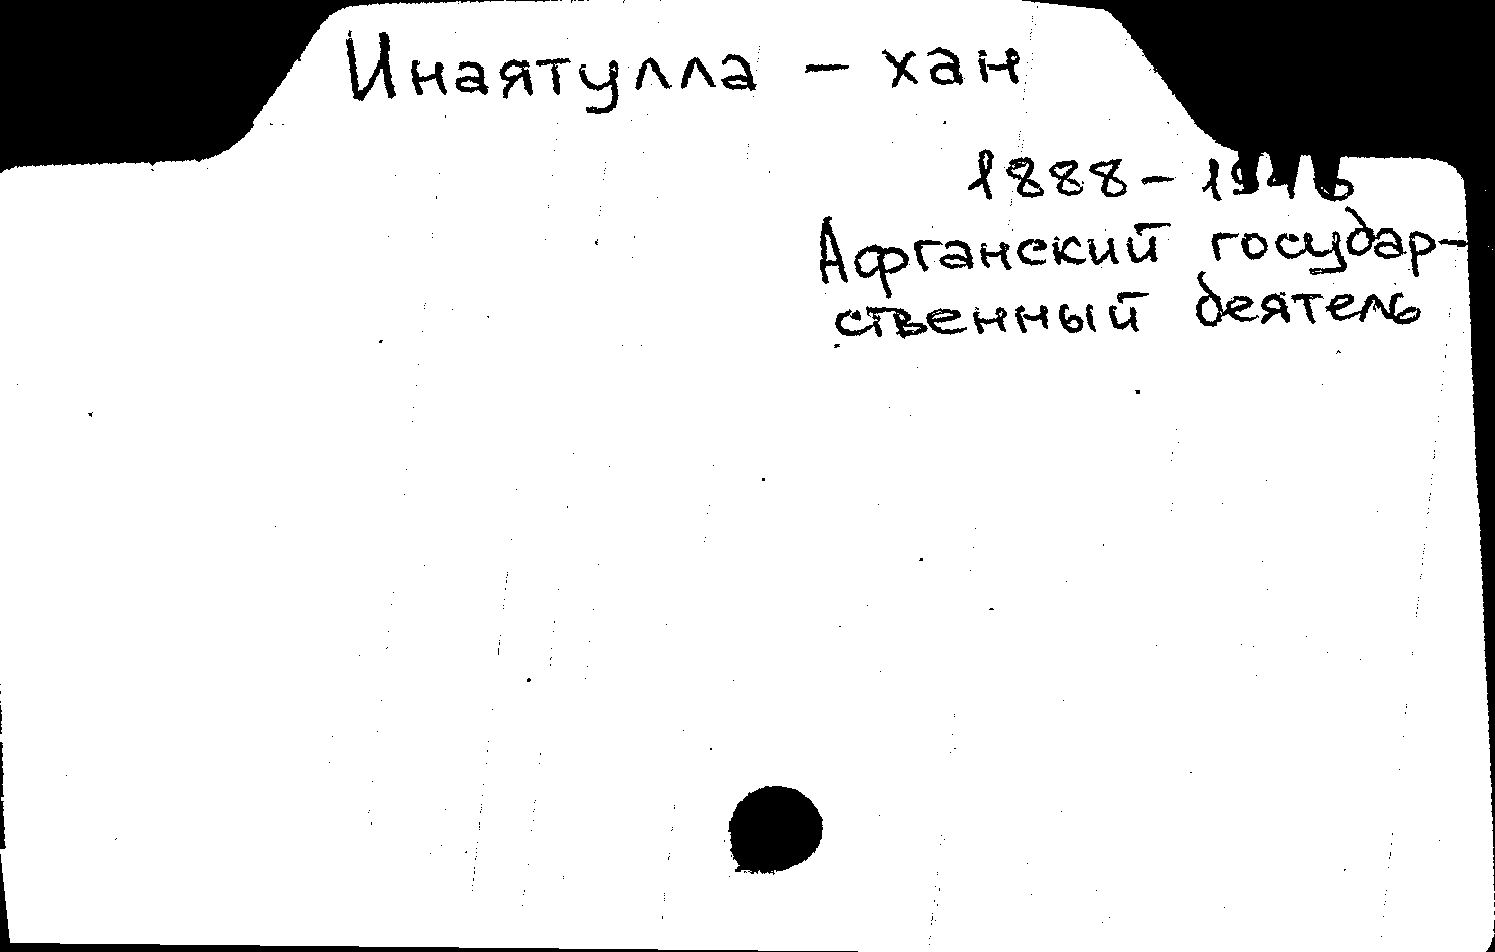 Инаятулла - хан
1888 - 1946
Афганский государ-
ственный деятель